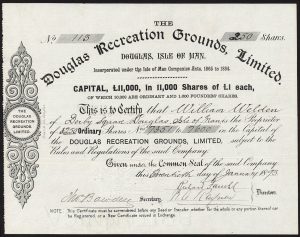 THE
No 113 250 Shares.
Douglas Recreation Grounds, Limited
DOUGLAS, ISLE OF MAN.
Incorporated under the Isle of Man Companies Acts, 1865 to 1884.
CAPITAL, £11,000, in 11,000 Shares of £1 each,
OF WHICH 10,000 ARE ORDINARY AND 1,000 FOUNDERS' SHARES.
This is to Certify that William Welden
of Derby Square Douglas Isle of Man is the Proprietor
of 250 Ordinary Shares No 7351 to 7600 in the Capital of
the DOUGLAS RECREATION GROUNDS, LIMITED, subject to the
Rules and Regulations of the said Company.
Given under the Common Seal of the said Company
this day of January 1893
Secretary.
Directors.
THE DOUGLAS RECREATION GROUNDS LIMITED
NOTE This Certificate must be surrendered before any Deed or Transfer whether for the whole or any portion thereof can be registered, or a New Certificate issued in Exchange.